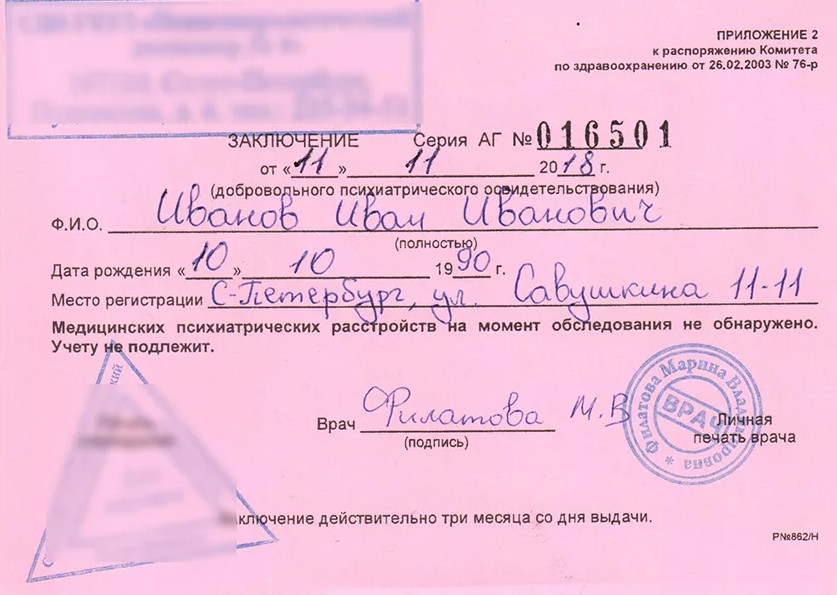 ПРИЛОЖЕНИЕ 2
к распоряжению Комитета
по здравоохранению от 26.02.2003 № 76-р
ЗАКЛЮЧЕНИЕ Серия АГ № 016501
от «11» 11 2018 г.
(добровольного психиатрического освидетельствования)
Ф.И.О. Иванов Иван Иванович
(полностью)
Дата рождения «10» 10 1990 г.
Место регистрации С-Петербург, ул. Савушкина 11-11
Медицинских психиатрических расстройств на момент обследования не обнаружено.
Учету не подлежит.
Врач Филатова М.В
(подпись)
Филатова Марина Владимировна * ВРАЧ
Личная
печать врача
заключение действительно три месяца со дня выдачи.
Р№862/Н